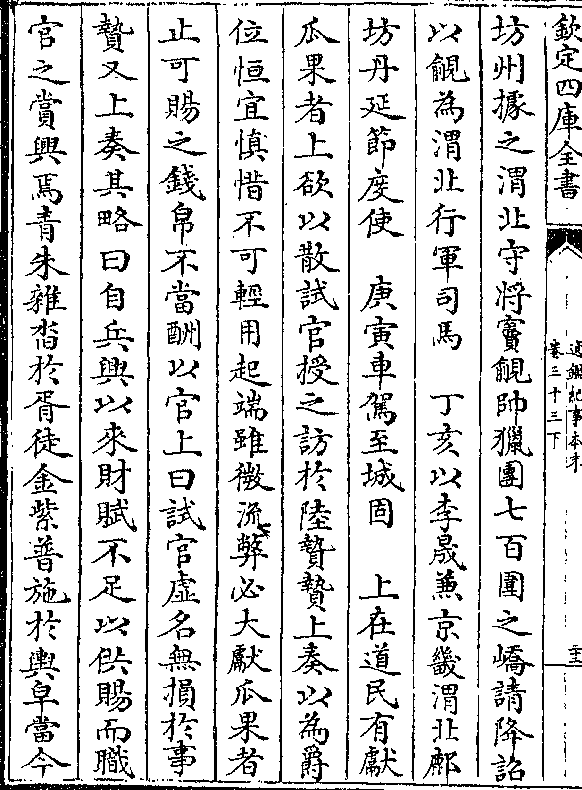 欽定四庫全書
通鑑紀事本末
卷三十三下
坊州據之渭北守將竇覦帥獵團七百圍之嶠請降詔
以覦為渭北行軍司馬　丁亥以李晟兼京畿渭北鄜
坊丹延節度使　庚寅車駕至城固　上在道民有獻
瓜果者上欲以散試官授之訪於陸贄贄上奏以為爵
位恒宜慎惜不可輕用起端雖微流弊必大獻瓜果者
止可賜之錢帛不當酬以官上曰試官虛名無損於事
贄又上奏其略曰自兵興以來財賦不足以供賜而職
官之賞興焉青朱雜沓於胥徒金紫普施於輿皁當今